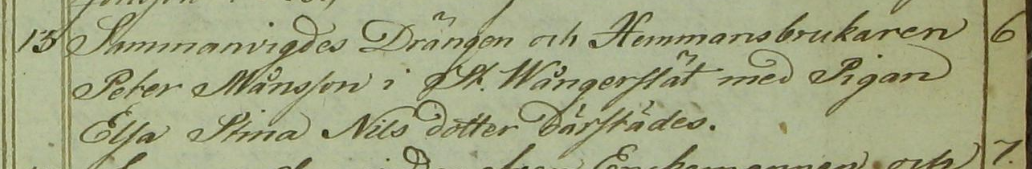 13 Sammanvigdes Drängen och Hemmansbrukaren 6
Peter Månsson i St. Wångerslät med Pigan
Elsa Stina Nils dotter därstädes.
Enckemannen och 7.